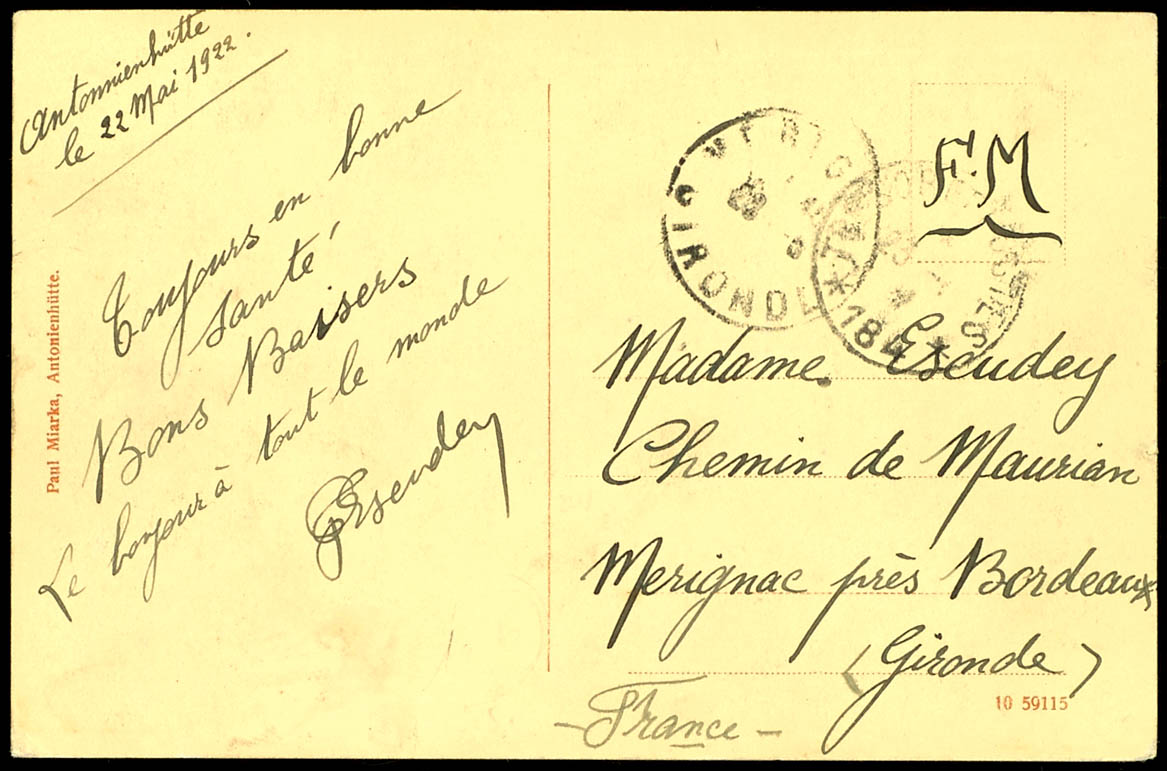 Antonnienhütte
le 22 Mai 1922.
Toujours en bonne
santé
Bons Baisers
Le bonjour à tout le monde
GEscudey
Paul Miarka, Antonienhütte.
MERIG
GIRONDE
*TRESOR ET POSTES
*184*
F.M
Madame Escudey
Chemin de Maurian
Merignac près Bordeaux
(Gironde)
10 59115
- France -